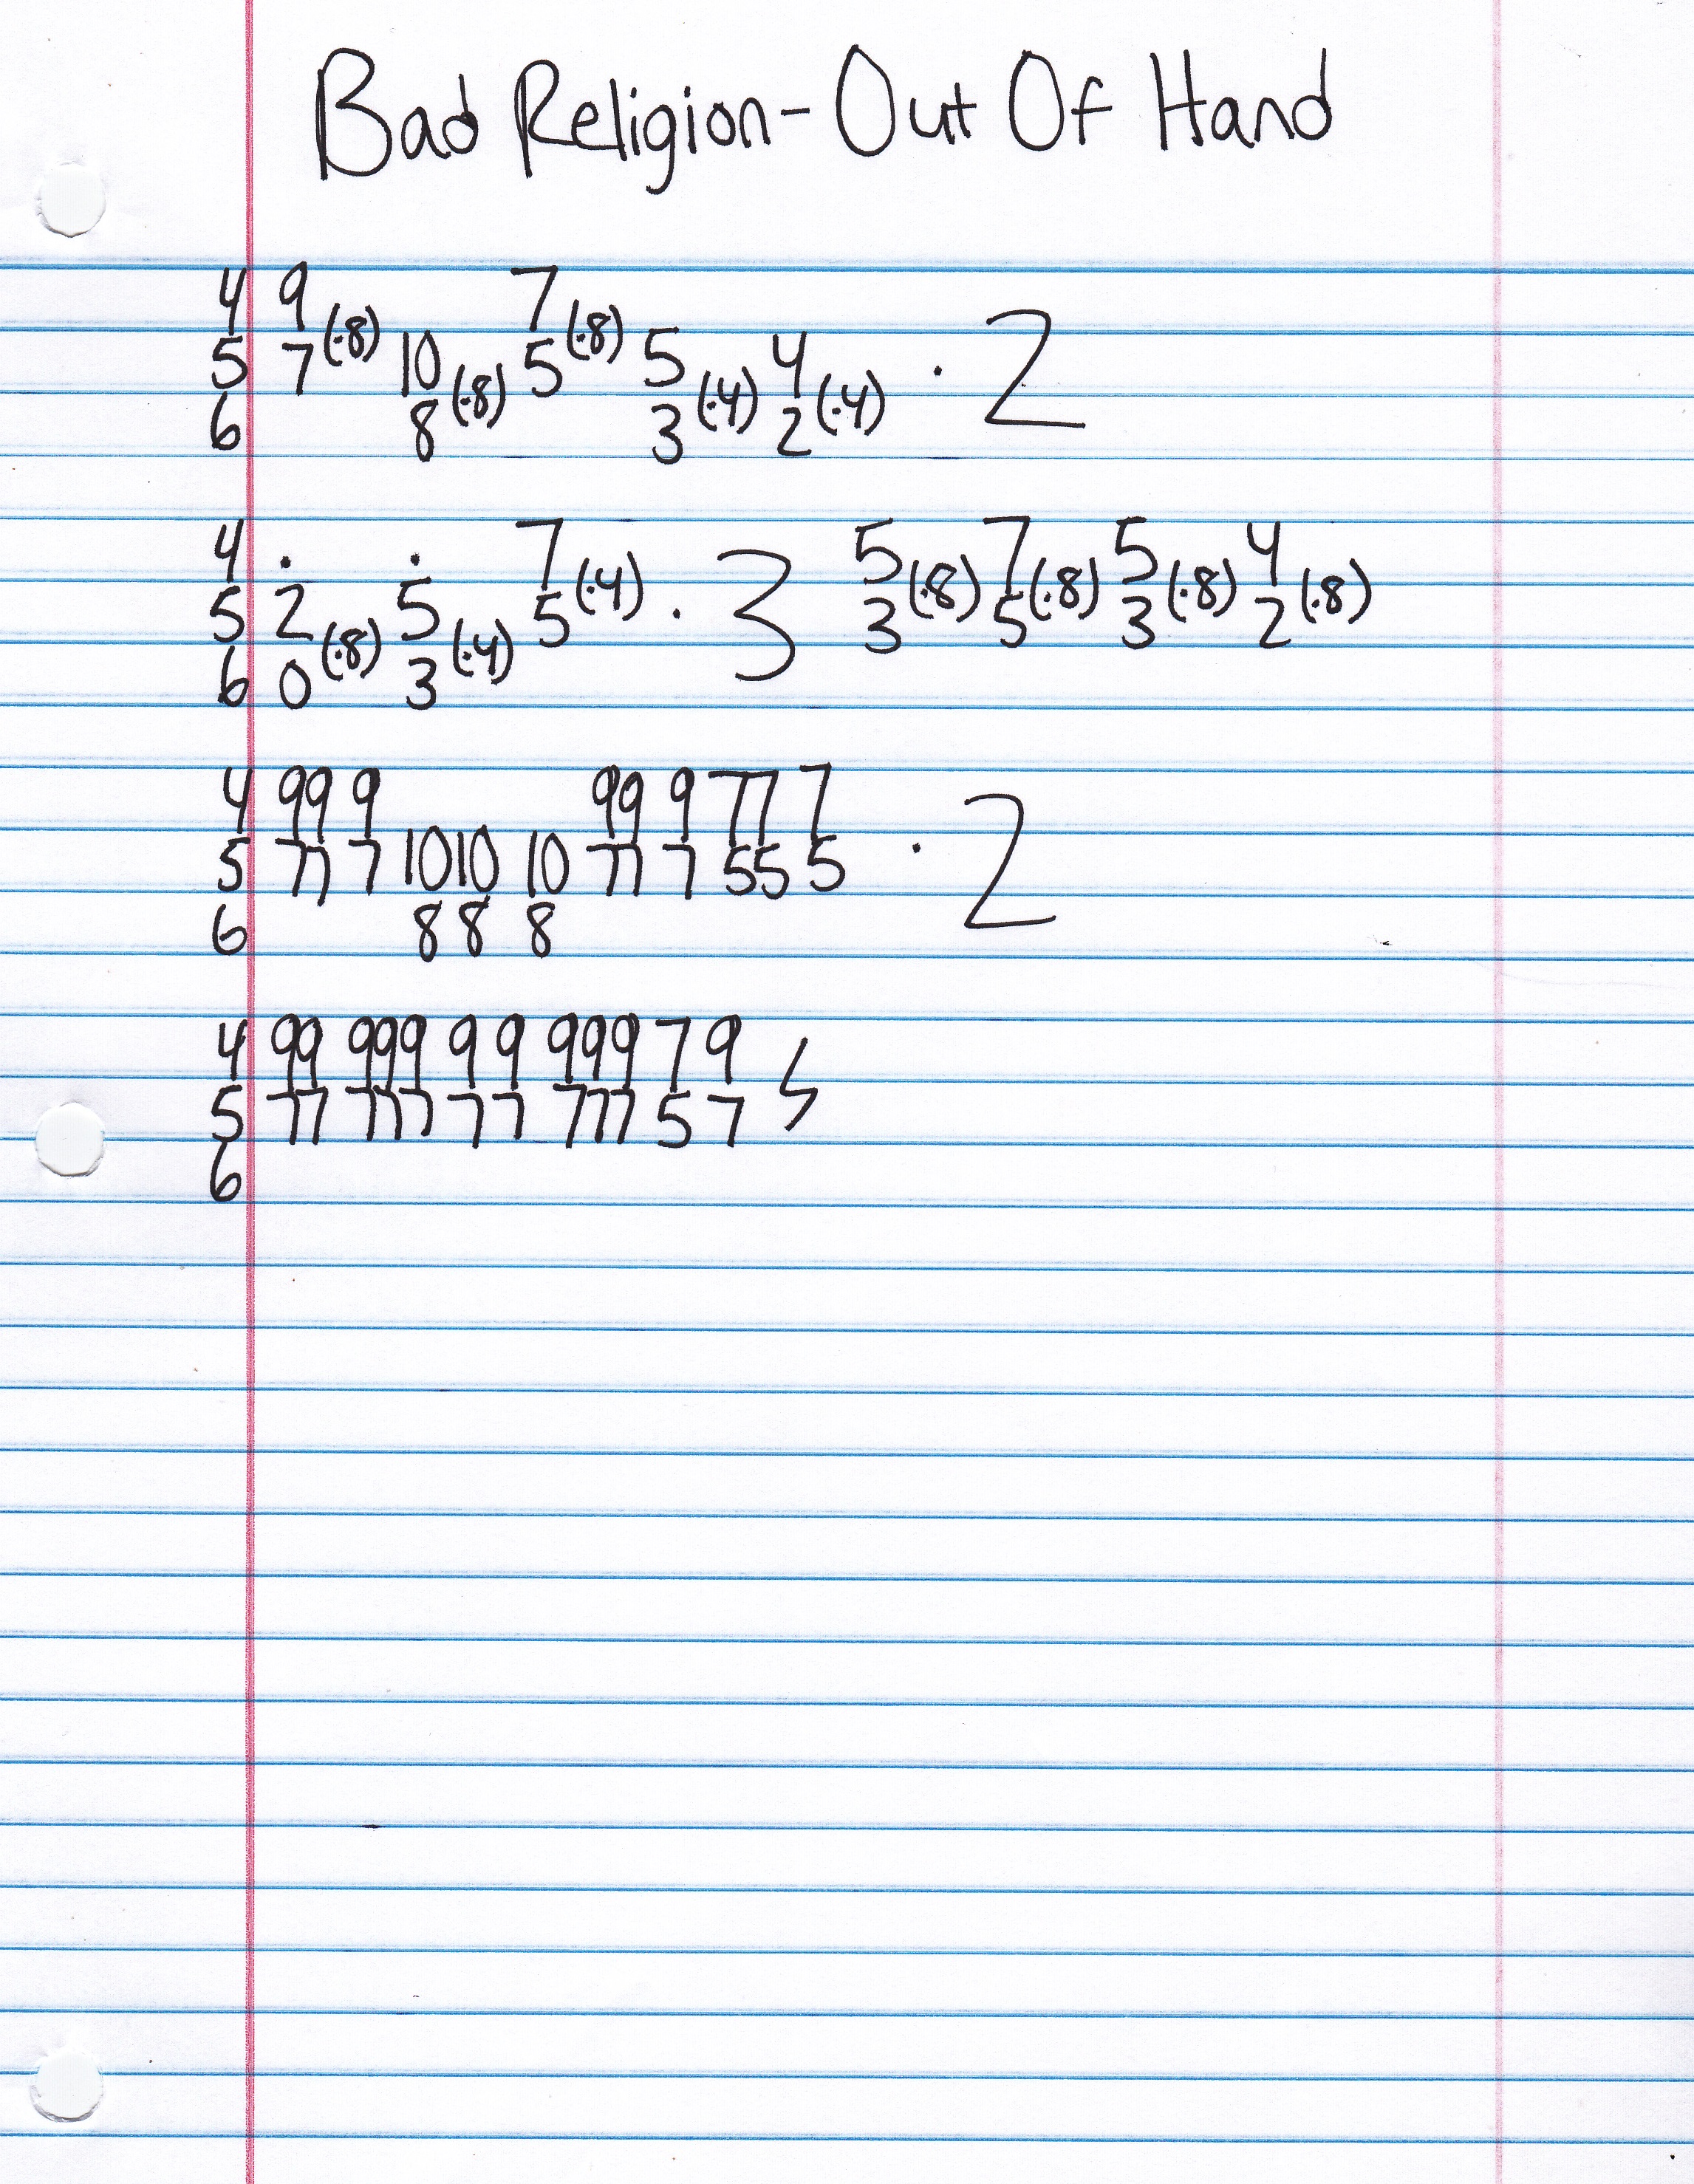 Bad Religion - Out Of Hand
4 9 7
5 7 (·8) 10 5 (·8) 5 4 · 2
6 8 (·8) 3 (·4) 2 (·4)
4 · · 7 5 7 5 4
5 2 5 5 (·4) · 3 3 (·8) 5 (·8) 3 (·8) 2 (·8)
6 0 (·8) 3 (·4)
4 99 9 99 9 77 7
5 77 7 1010 10 77 7 55 5 · 2
6 8 8 8
4 99 999 9 9 999 7 9
5 77 777 7 7 777 5 7
6